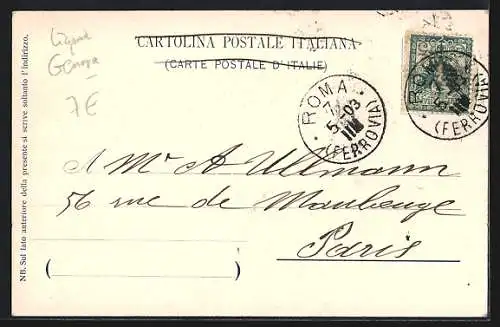 Liguria
Genova
7€
CARTOLINA POSTALE ITALIANA
(CARTE POSTALE D'ITALIE)
ROMA
7
5-03
(FERROVIA)
ROMA
5-03
(FERROVIA)
A Mr A Ullmann
56 rue de Maubeuge
Paris
NB. Sul lato anteriore della presente si scrive soltanto l'indirizzo.